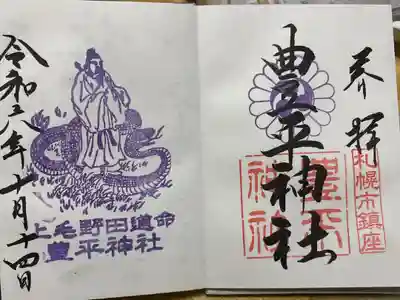 奉拝
札幌市鎮座
豊平神社
豊平
神社
令和六年十月十四日
上毛野田道命
豊平神社